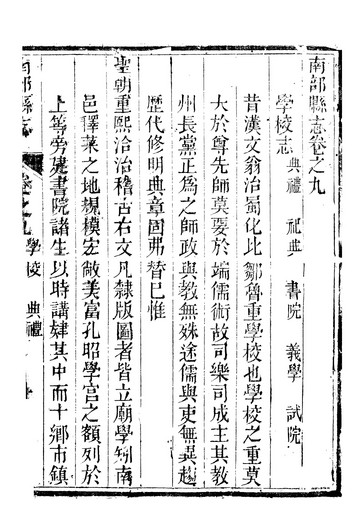 南部縣志卷之九
學校志 典禮 祀典 書院 義學 試院
昔漢文翁治蜀化比鄒魯重學校也學校之重莫
大於尊先師莫要於端儒術故司樂司成主其教
州長黨正爲之師政與教無殊途儒與吏無異趨
歷代修明典章固弗替已惟
聖朝重熙洽治稽古右文凡隸版圖者皆立廟學矧南
邑釋菜之地規模宏敞美富孔昭學宮之額列於
上等旁建書院諸生以時講肄其中而十鄉市鎮
南部縣志 卷之九 學校 典禮